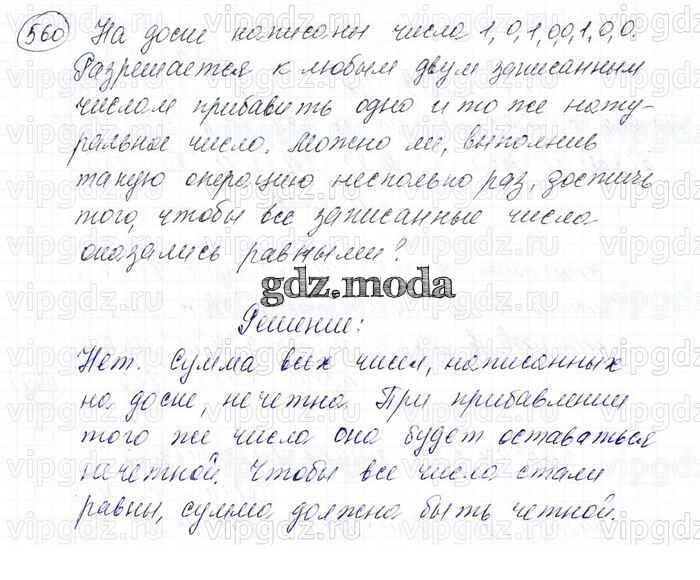 560 На доске написаны числа 1,0,1,0,0,1,0,0.
Разрешается к любым двум записанным
числам прибавить одно и то же нату-
ральное число. Можно ли, выполнив
такую операцию несколько раз, достичь
того, чтобы все записанные числа
оказались равными?
gdz.moda
Решение:
Нет. Сумма всех чисел, написанных
на доске, нечетна. При прибавлении
того же числа она будет оставаться
нечетной. Чтобы все числа стали
равны, сумма должна быть четной.